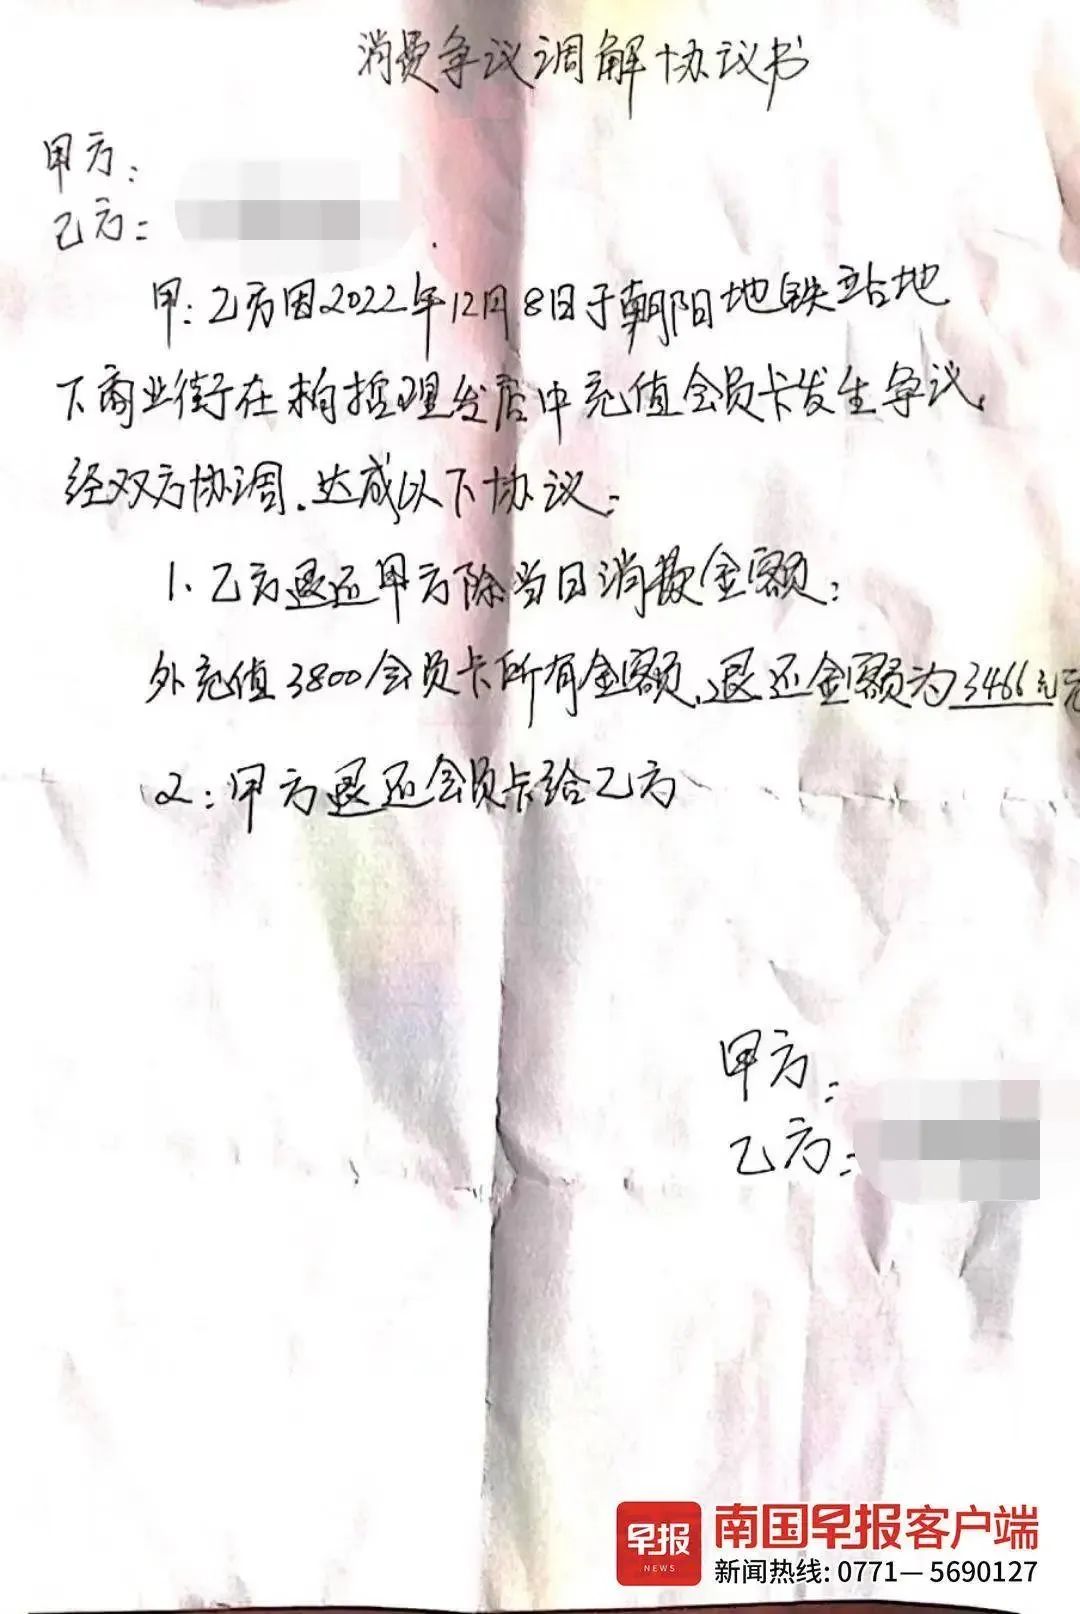 消费争议调解协议书
甲方:
乙方:
甲:乙方因2022年12月8日于朝阳地铁站地
下商业街在柏哲理发店中充值会员卡发生争议,
经双方协调.达成以下协议:
1、乙方退还甲方除当日消费金额:
外充值3800会员卡所有金额,退还金额为3466元元
2:甲方退还会员卡给乙方
甲方:
乙方:
早报
NEWS
南国早报客户端
新闻热线: 0771— 5690127